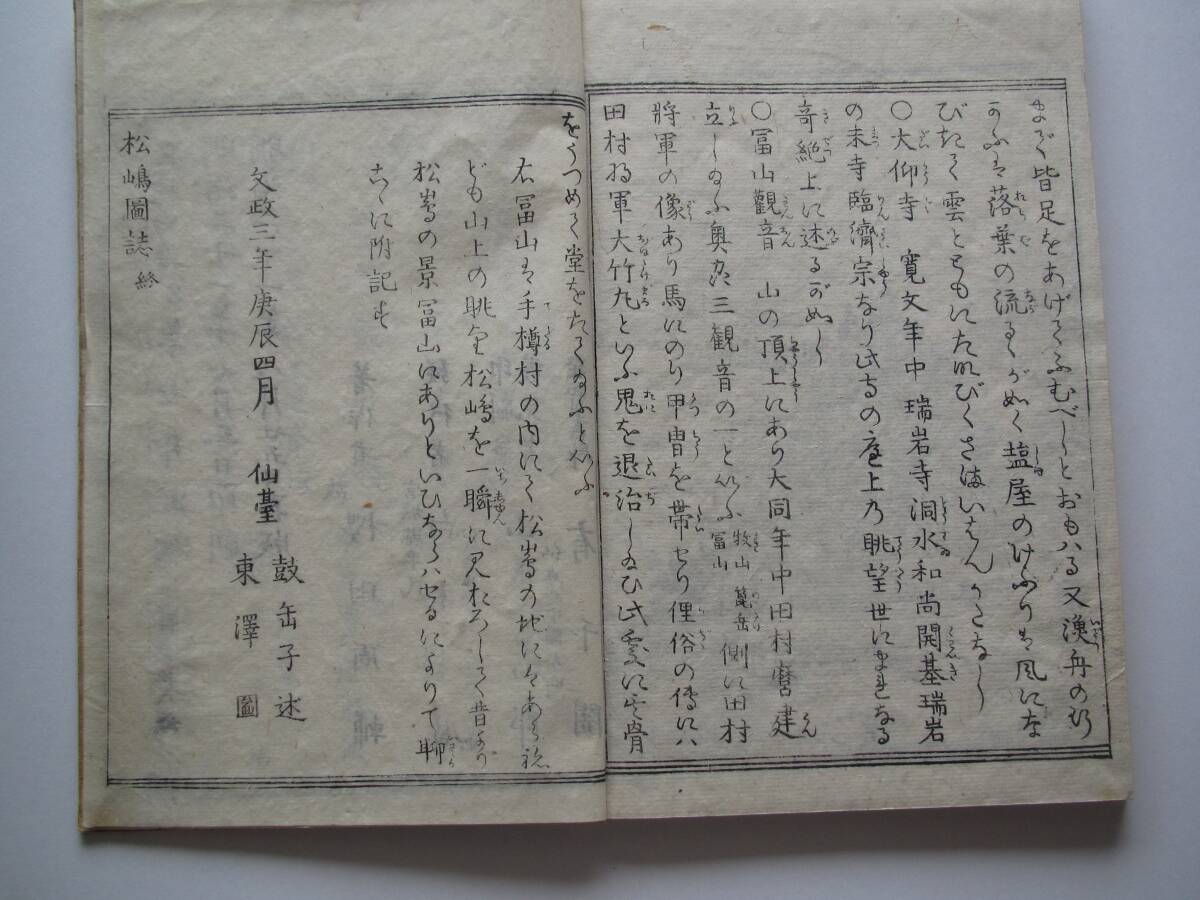 まで皆足をあげてふむべしとおもハる又漁舟の行
かふは落葉の流るゝがぬく塩屋のけふりは風にな
びきて雲とともにたなびくさまいはんかたなし
○大仰寺 寛文年中瑞岩寺洞水和尚開基瑞岩
の末寺臨濟宗なり此寺の庭上乃眺望世にまれなる
竒絶上に述るがぬし
○冨山觀音 山の頂上にあり大同年中田村麿建
立し給ふ奥州三観音の一といふ 牧山 箟岳 冨山 側に田村
將軍の像あり馬にのり甲冑を帯せり俚俗の傳にハ
田村将軍大竹丸といふ鬼を退治し給ひ此處に其骨
をうづめて堂をたて給ふといふ
右冨山は手樽村の内にて松嶌の地にはあらね
ども山上の眺望松嶋を一瞬に見おろして昔より
松嶌の景冨山にありといひならハせるによりて聊
こゝに附記す
文政三年庚辰四月 仙臺 鼓缶子述
東澤圖
松嶋圖誌 終